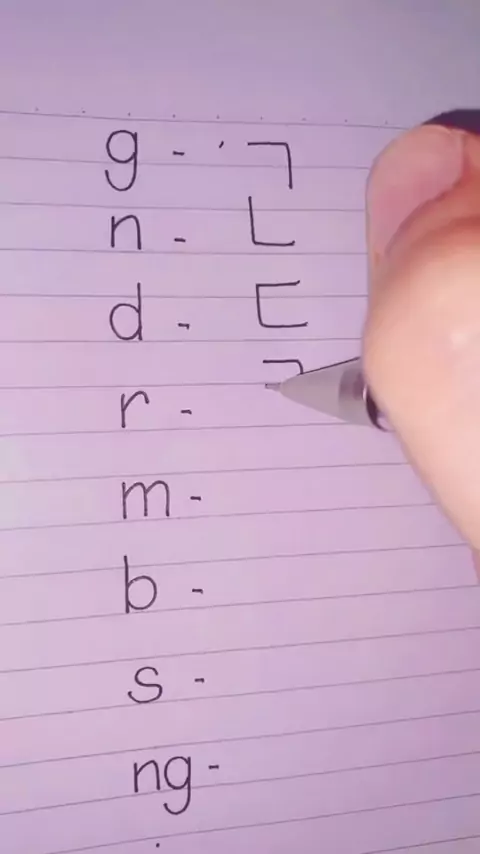 g - ㄱ
n - ㄴ
d - ㄷ
r -
m -
b -
s -
ng -